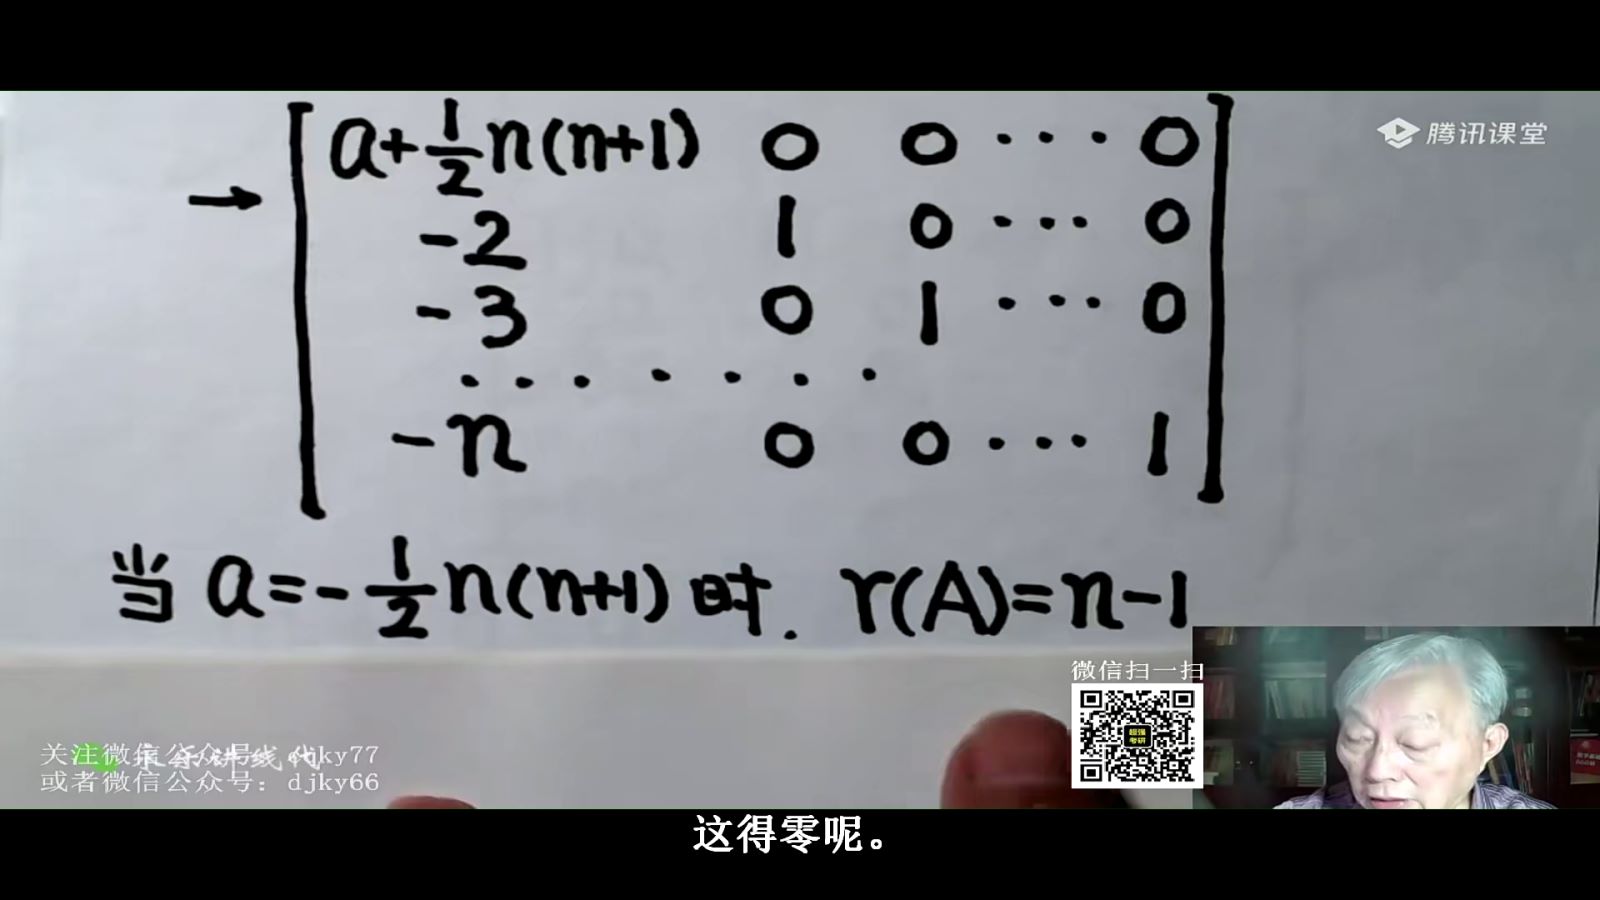 腾讯课堂
a+½n(n+1) 0 0 ··· 0
→
-2 1 0 ··· 0
-3 0 1 ··· 0
·······
-n 0 0 ··· 1
当 a=-½n(n+1) 时. r(A)=n-1
微信扫一扫
超强
考研
关注微信公众号: djky77
或者微信公众号: djky66
这得零呢。